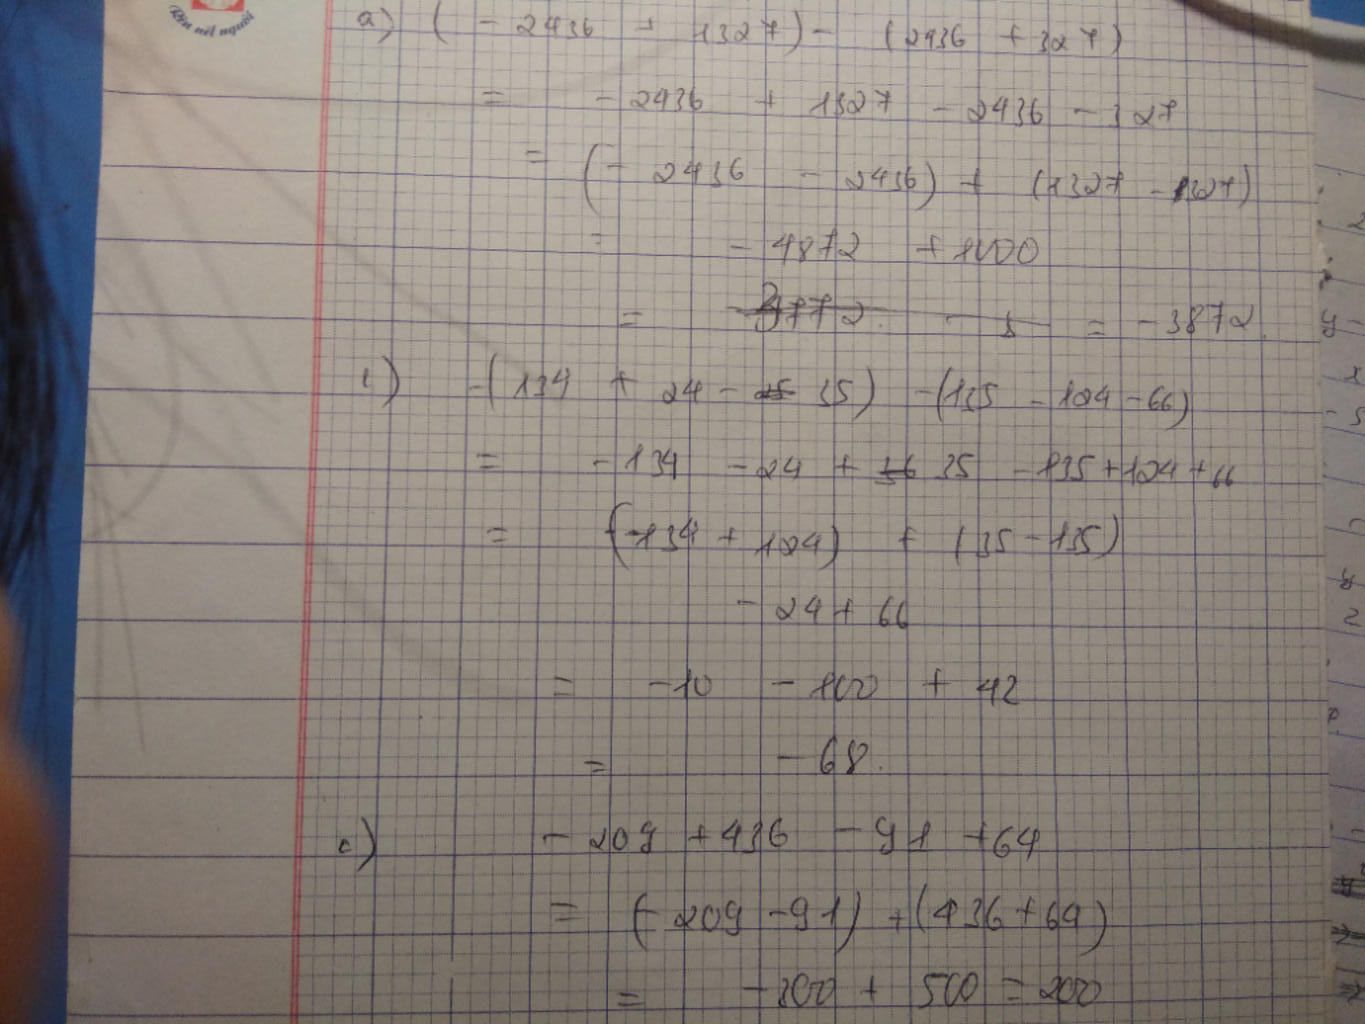 Rèn nết người
a) ( - 2436 + 1327) - (2436 + 327)
= - 2436 + 1327 - 2436 - 327
= (- 2436 - 2436) + (1327 - 327)
= - 4872 + 1000
= = - 3872
-(134 + 24 - 35) -(135 - 124 - 66)
= - 134 - 24 + 35 - 135 + 124 + 66
= (-134 + 124) + (35 - 135)
- 24 + 66
= -10 - 100 + 42
= - 68.
c) - 209 + 436 - 91 + 64
= (- 209 - 91) + (436 + 64)
= - 300 + 500 = 200